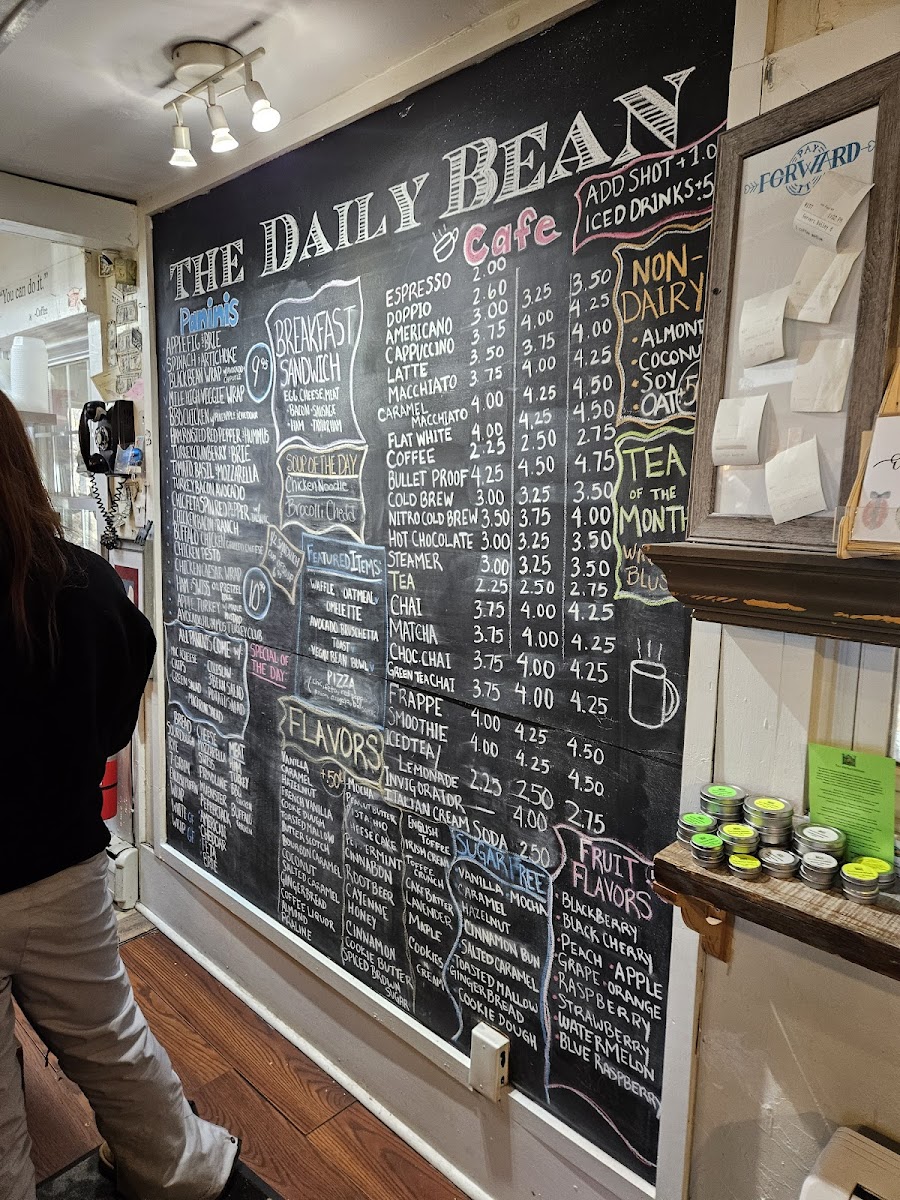 THE DAILY BEAN
Cafe
ADD SHOT +1.0
ICED DRINKS +.5
Paninis
APPLE FIG & BRIE
SPINACH & ARTICHOKE
BLACK BEAN WRAP
MILE HIGH VEGGIE WRAP
BBQ CHICKEN
HAM ROASTED RED PEPPER & HUMMUS
TURKEY CRANBERRY & BRIE
TOMATO BASIL & MOZZARELLA
TURKEY BACON AVOCADO
CHICKEN BACON RANCH
BUFFALO CHICKEN
CHICKEN PESTO
CHICKEN CAESAR WRAP
HAM & SWISS ON PRETZEL
APPLE TURKEY
AVOCADO HUMMUS TURKEY CLUB
9.95
ALL PANINI'S COME W/
MAC & CHEESE
CHIPS
GREEN SALAD
COLESLAW
3 BEAN SALAD
POTATO SALAD
MACARONI SALAD
BREAD
SOURDOUGH
RYE
7 GRAIN
WRAP
CHEESE
MOZZARELLA
SWISS
BRIE
PROVOLONE
MUENSTER
PEPPERJACK
AMERICAN
CHEDDAR
MEAT
HAM
TURKEY
BACON
BUFFALO
CHICKEN
BREAKFAST
SANDWICH
EGG, CHEESE, MEAT
• BACON • SAUSAGE
• HAM
SOUP OF THE DAY
Chicken Noodle
Brocolli Chedd
FEATURED ITEMS
WAFFLE OATMEAL
OMELETTE
AVOCADO BRUSCHETTA
TOAST
VEGAN BEAN BOWL
PIZZA
SPECIAL OF
THE DAY
ESPRESSO 2.00
DOPPIO 2.60
AMERICANO 3.00 3.25 3.50
CAPPUCCINO 3.75 4.00 4.25
LATTE 3.50 3.75 4.00
MACCHIATO 3.75 4.00 4.25
CARAMEL
MACCHIATO 4.00 4.25 4.50
FLAT WHITE 4.00 4.25 4.50
COFFEE 2.25 2.50 2.75
BULLET PROOF 4.25 4.50 4.75
COLD BREW 3.00 3.25 3.50
NITRO COLD BREW 3.50 3.75 4.00
HOT CHOCOLATE 3.00 3.25 3.50
STEAMER 3.00 3.25 3.50
TEA 2.25 2.50 2.75
CHAI 3.75 4.00 4.25
MATCHA 3.75 4.00 4.25
CHOC. CHAI 3.75 4.00 4.25
GREEN TEA CHAI 3.75 4.00 4.25
FRAPPE 4.00 4.25 4.50
SMOOTHIE 4.00 4.25 4.50
ICED TEA/
LEMONADE 2.25 2.50 2.75
INVIGORATOR — 4.00
ITALIAN CREAM SODA 2.50
NON-
DAIRY
• ALMOND
• COCONU
• SOY
• OAT
TEA
OF THE
MONTH
FLAVORS
+50¢
VANILLA
CARAMEL
HAZELNUT
FRENCH VANILLA
COOKIE DOUGH
TOASTED MALLOW
BUTTER SCOTCH
BOURBON CARAMEL
COCONUT
SALTED CARAMEL
GINGERBREAD
COFFEE LIQUOR
ALMOND
PRALINE
MOCHA
PEANUT BUTTER
PISTACHIO
CHEESECAKE
PEPPERMINT
CINNABON
ROOTBEER
CAYENNE
HONEY
CINNAMON
COOKIE BUTTER
SPICED BROWN
SUGAR
ENGLISH
TOFFEE
IRISH CREAM
TOFFEE
CRUNCH
CAKE BATTER
LAVENDER
MAPLE
COOKIES
CREAM
SUGAR FREE
VANILLA • MOCHA
CARAMEL
HAZELNUT
CINNAMON BUN
SALTED CARAMEL
TOASTED MALLOW
GINGERBREAD
COOKIE DOUGH
FRUIT
FLAVORS
• BLACKBERRY
• BLACK CHERRY
• PEACH • APPLE
• GRAPE • ORANGE
• RASPBERRY
• STRAWBERRY
• WATERMELON
• BLUE RASPBERRY
PAY
IT
FORWARD
"You can do it."
-Coffee